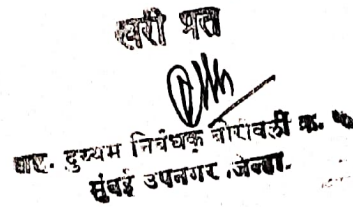 खरी प्रत
सह. दुय्यम निबंधक बोरीवली क्र.
मुंबई उपनगर जिल्हा.